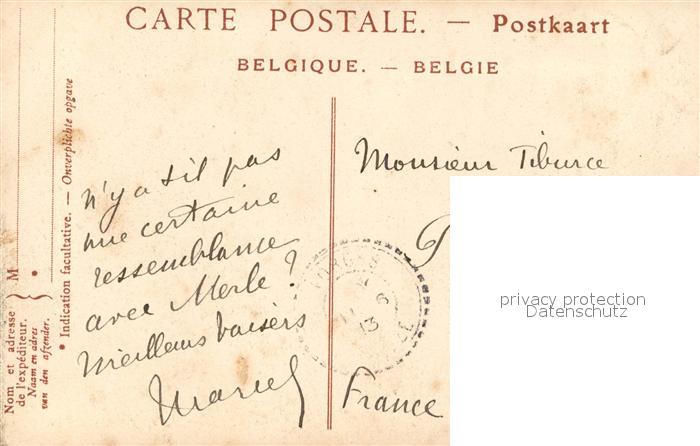 CARTE POSTALE. — Postkaart
BELGIQUE. — BELGIE
n'y a t il pas
une certaine
ressemblance
avec Merle ?
Meilleurs baisers
Marcel
Monsieur Tiburce
France
privacy protection
Datenschutz
M
Nom et adresse
de l'expéditeur.
Naam en adres
van den afzender.
* Indication facultative. — Onverplichte opgave *